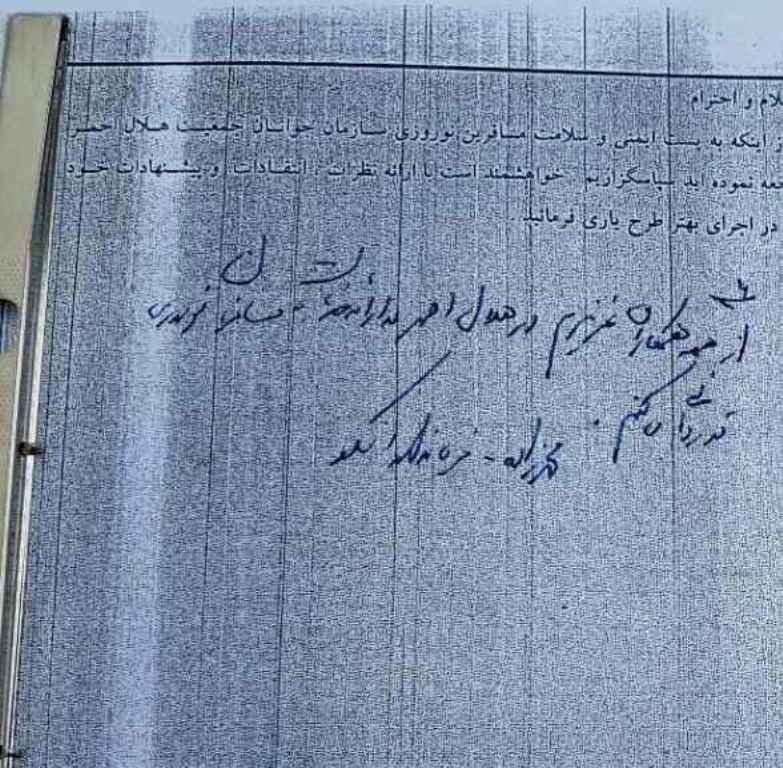 لام و احترام
ز اینکه به پست ایمنی و سلامت مسافرین نوروزی سازمان جوانان جمعیت هلال احمر
جعه نموده اید سپاسگزاریم خواهشمند است با ارائه نظرات ، انتقادات و پیشنهادات خود
در اجرای بهتر طرح یاری فرمائید .
از همه همکاران عزیزم در هلال احمر مسافرین نوروزی
قدردانی می کنم .
فرماندار اسکو